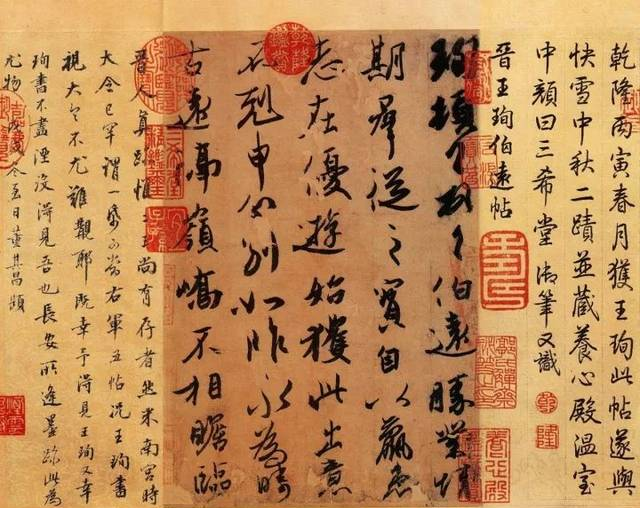 乾隆丙寅春月獲王珣此帖遂與
快雪中秋二蹟並藏養心殿溫室
中顏曰三希堂御筆又識
乾隆
晉王珣伯遠帖
珣頓首頓首伯遠勝業情
期群從之寶自以羸患
志在優遊始獲此出意
不剋申分別如昨永為疇
古遠隔嶺嶠不相瞻臨
晉人真跡惟二王尚有存者然米南宮時
大令已罕謂一紙可當右軍五帖況王珣書
視大令不尤難覯耶既幸予得見王珣又幸
珣書不盡湮沒得見吾也長安所逢墨跡此為
尤物戊戌冬至日董其昌題